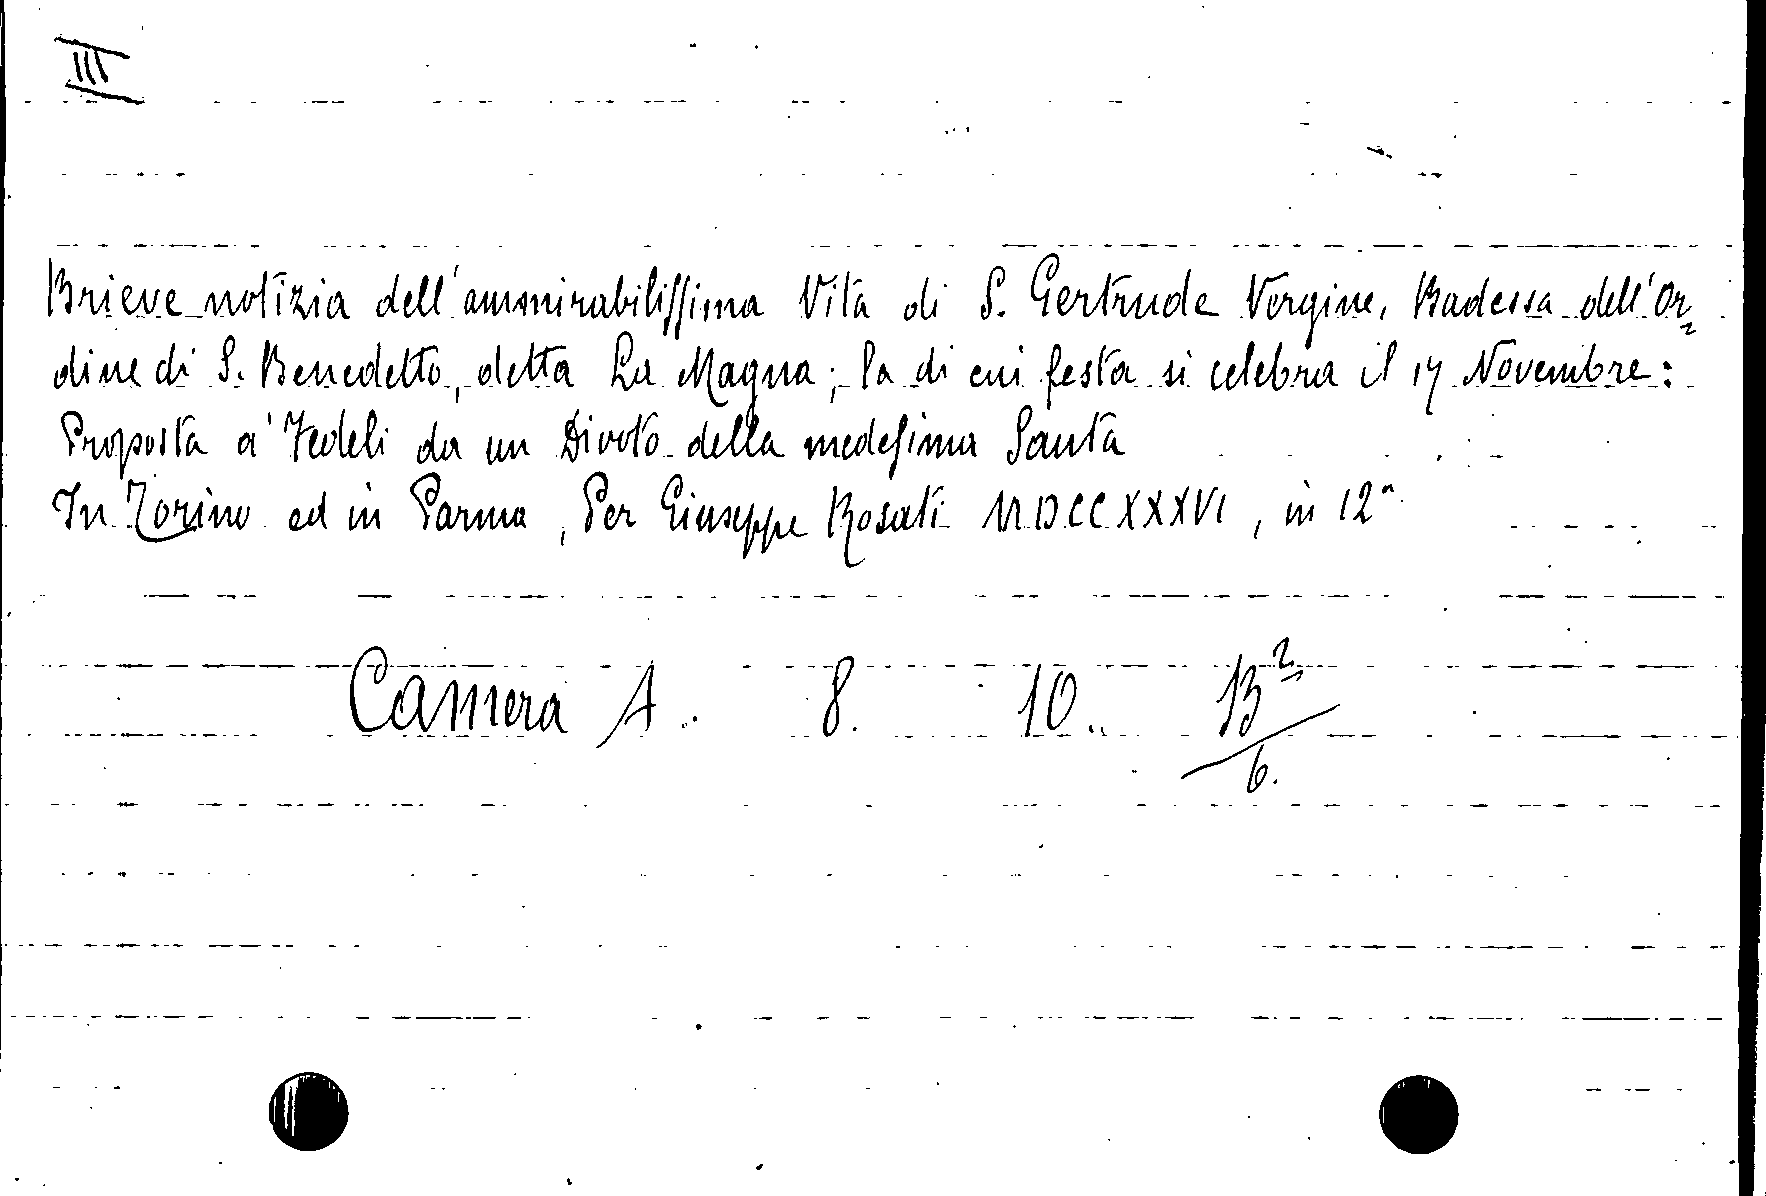 III
Brieve notizia dell'ammirabiliſſima Vita di S. Gertrude Vergine, Badessa dell'Or=
dine di S. Benedetto, detta La Magna; la di cui festa si celebra il 17 Novembre:
Proposta a' Fedeli da un Divoto della medeſima Santa
In Torino ed in Parma, Per Giuseppe Rosati MDCCXXXVI, in 12°
Camera A. 8. 10. B²
6.